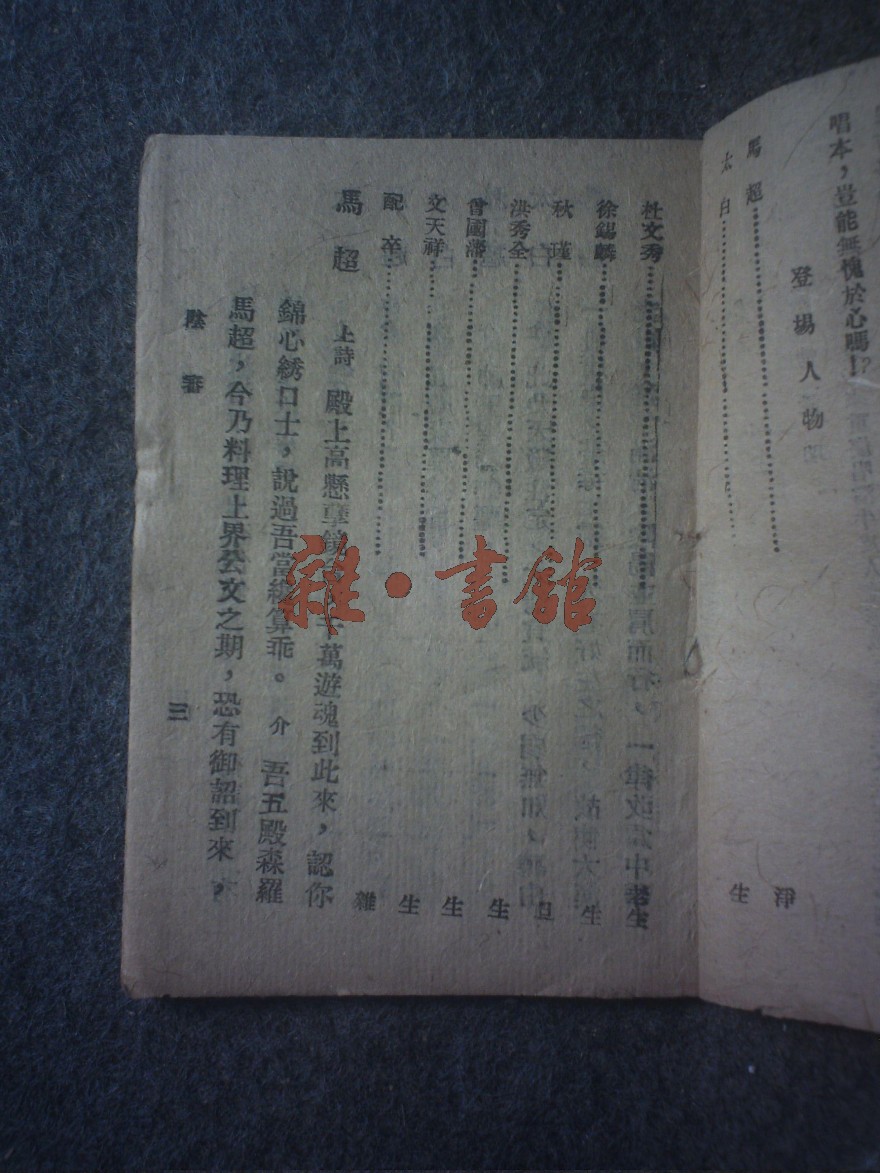 唱本，豈能無愧於心嗎！？
登場人物
馬超⋯⋯淨
太白⋯⋯生
杜文秀⋯⋯生
徐錫麟⋯⋯生
秋瑾⋯⋯旦
洪秀全⋯⋯生
曾國藩⋯⋯生
文天祥⋯⋯生
配卒⋯⋯雜
馬超　上詩　殿上高懸孽鏡　千萬遊魂到此來，認你
錦心綉口士，說過吾當總算乖。　介　吾五殿森羅
馬超，今乃料理上界公文之期，恐有御詔到來，
陰審
三
雜·書館